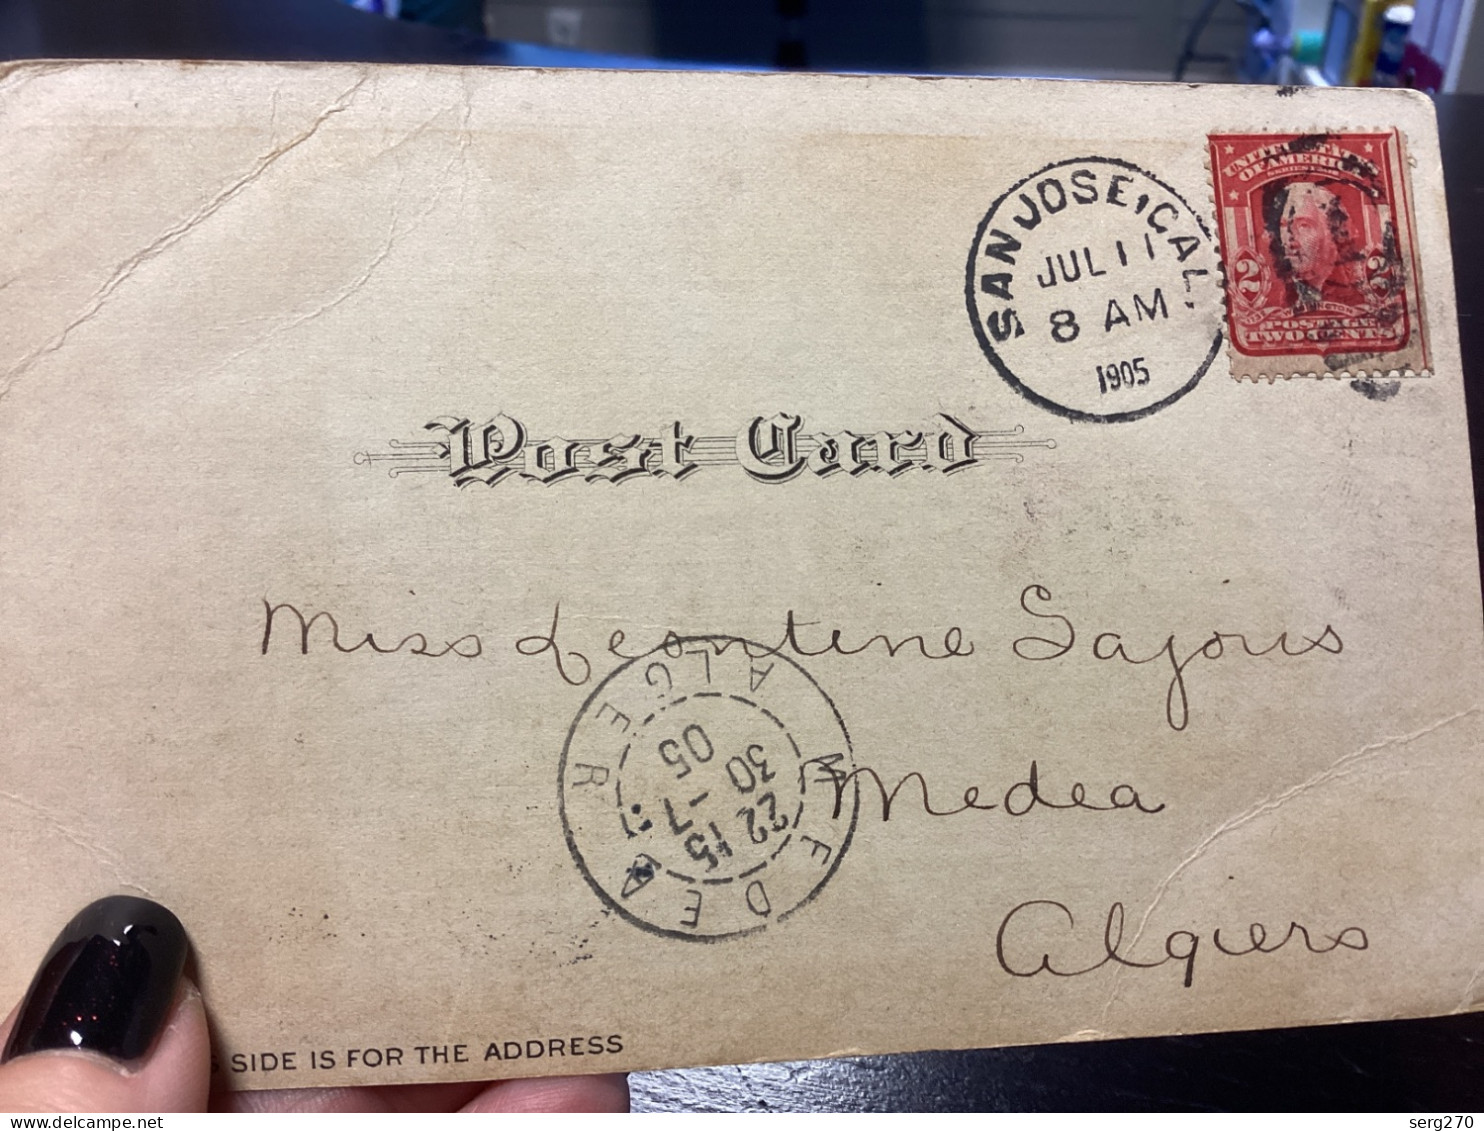 SAN JOSE, CAL.
JUL 11
8 AM
1905
UNITED STATES
OF AMERICA
2 2
WASHINGTON
POSTAGE
TWO CENTS
Post Card
Miss Leontine Sajous
Medea
Algiers
MEDEA
ALGER
22 15
30 -7
05
SIDE IS FOR THE ADDRESS
www.delcampe.net
serg270